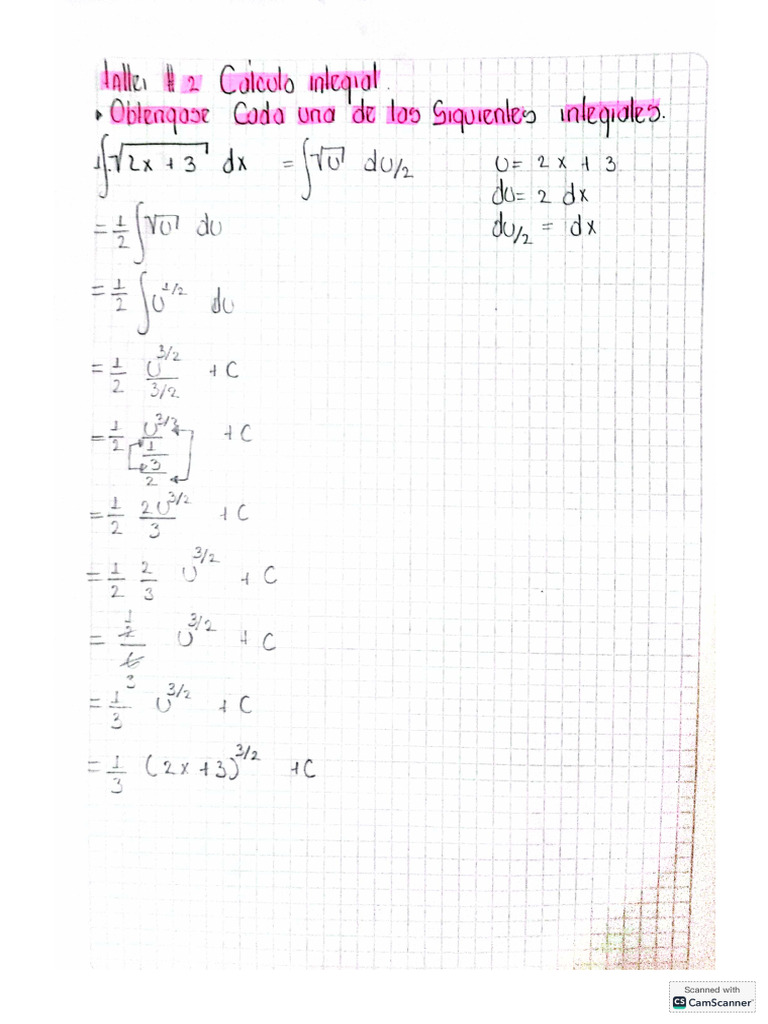 Taller # 2 Cálculo integral.
• Obtengase Cada una de las Siquientes integrales.
1. ∫√(2x + 3) dx = ∫√U dU/2 U = 2x + 3
dU = 2 dx
= 1/2 ∫√U dU dU/2 = dx
= 1/2 ∫U^1/2 dU
= 1/2 U^3/2 / 3/2 + C
= 1/2 U^3/2 / 1 / 3/2 + C
= 1/2 2U^3/2 / 3 + C
= 1/2 2/3 U^3/2 + C
= 2/6 1/3 U^3/2 + C
= 1/3 U^3/2 + C
= 1/3 (2x+3)^3/2 + C
Scanned with
CS CamScanner